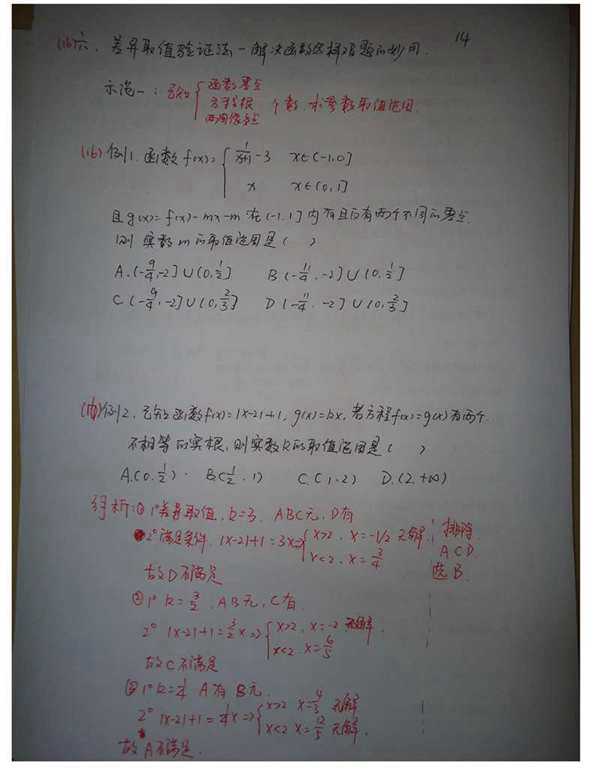 14
(16)六、差异取值验证法-解决函数怎样习题的妙用.
示范一:已知{函数零点 方程根 两图像交点 个数.求参数取值范围.
(16)例1.函数f(x)={1/(x+1)-3 x∈(-1,0]
x x∈(0,1]
且g(x)=f(x)-mx-m在(-1,1]内有且只有两个不同的零点.
则实数m的取值范围是( )
A.(-9/4,-2]∪(0,1/2] B(-11/4,-2]∪(0,1/2]
C.(-9/4,-2]∪(0,2/3] D(-11/4,-2]∪(0,2/3]
例2.已知函数f(x)=|x-2|+1,g(x)=kx,若方程f(x)=g(x)有两个
不相等的实根,则实数k的取值范围是( )
A.(0,1/2). B.(1/2,1) C.(1,2) D.(2,+∞)
解析:①1°差异取值,k=3. ABC无,D有
2°满足条件.|x-2|+1=3x⇒{x>2,x=-1/2无解;
x<2,x=3/4
排除
ACD
选B.
故D不满足
②1° k=3/2.AB无,C有.
2° |x-2|+1=3/2x⇒{x>2,x=-2无解,
x<2 x=6/5
故C不满足
③1° k=1/4 A有B无.
2° |x-2|+1=1/4x⇒{x>2 x=4/3无解
x<2 x=12/5无解.
故A不满足.